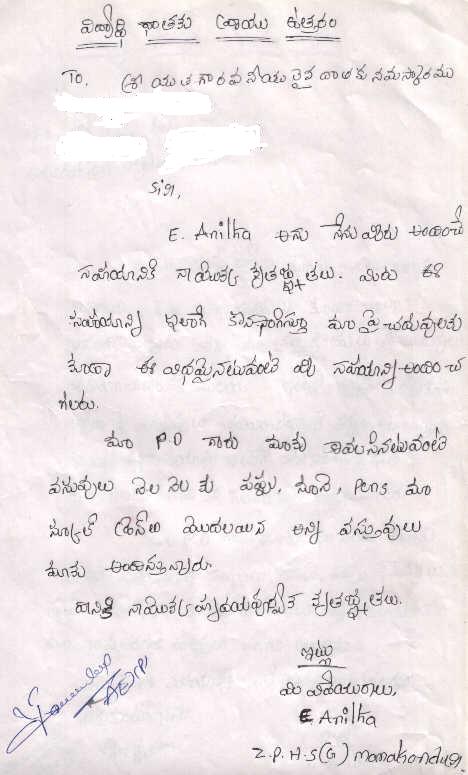 విద్యార్థి దాతకు వ్రాయు ఉత్తరం
TO. శ్రీయుత గౌరవనీయులైన దాతకు నమస్కారములు
సార్,
E. Anilha అను నేను మీరు అందించే
సహయానికి నాయొక్క కృతజ్ఞతలు. మీరు ఈ
సహయాన్ని ఇలాగే కొనసాగిస్తూ మా పై చదువులకు
కూడా ఈ విధమైనటువంటి మీ సహయాన్ని అందించ
గలరు.
మా P.D గారు మాకు కావలసినటువంటి
వస్తువులు నెల నెల కు పప్పు, నూనె, Pens మా
స్కూల్ మొదలయిన అన్ని వస్తువులు
మాకు అందిస్తున్నారు.
దానికి నాయొక్క హృదయపూర్వక కృతజ్ఞతలు.
ఇట్లు
మీ విధేయురాలు,
E Anilha
Z.P.H.S(G)